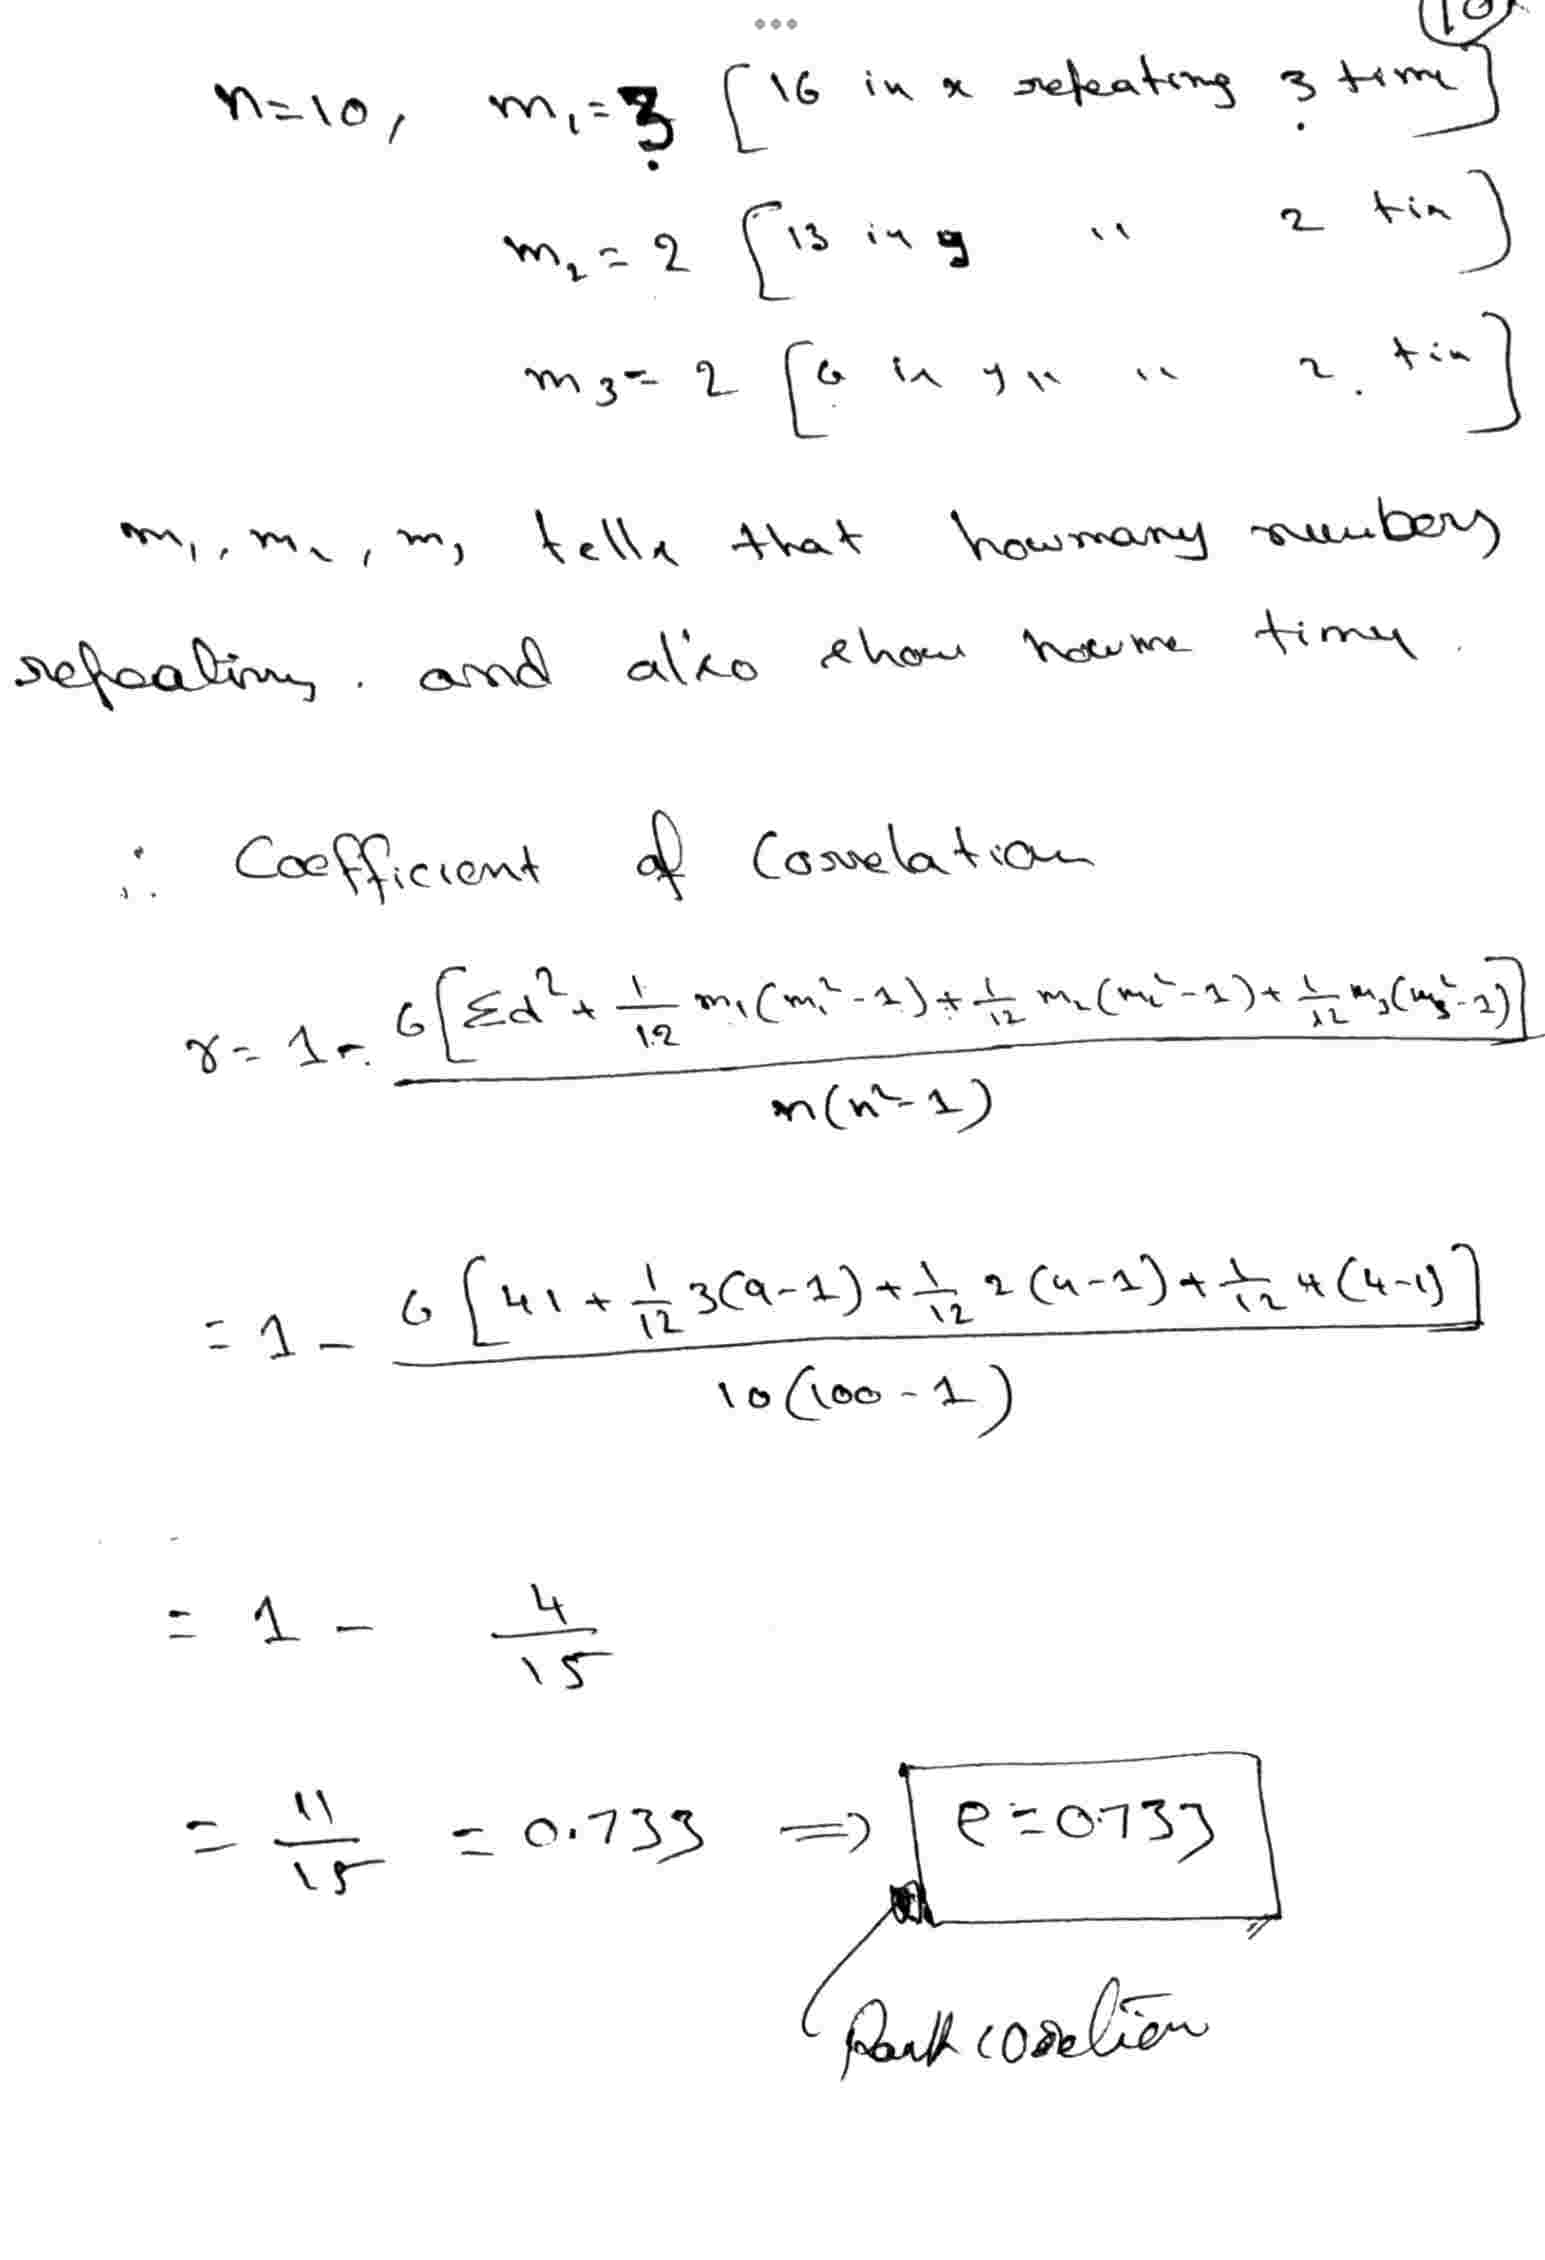 10
n=10, m₁=3 [16 in x repeating 3 time]
m₂=2 [13 in y " 2 tin]
m₃=2 [6 in y " " 2. tin]
m₁, m₂, m₃ tells that howmany numbers
repeating. and also show howme timy.
∴ Coefficient of Correlation
r = 1 - 6[Σd² + 1/12 m₁(m₁²-1) + 1/12 m₂(m₂²-1) + 1/12 m₃(m₃²-1)] / n(n²-1)
= 1 - 6[41 + 1/12 3(9-1) + 1/12 2(4-1) + 1/12 4(4-1)] / 10(100-1)
= 1 - 4/15
= 11/15 = 0.733 ⇒ ρ=0.733
Rank